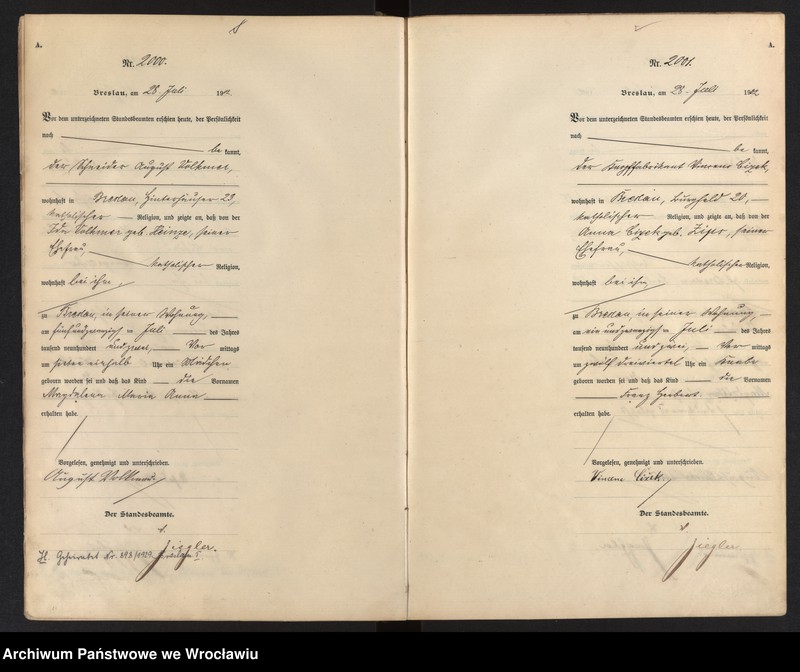 A.
Nr. 2000.
Breslau, am 28. Juli 1902.
Vor dem unterzeichneten Standesbeamten erschien heute, der Persönlichkeit
nach
bekannt,
der Schneider August Volkmer,
wohnhaft in Breslau, Hinterhäuser 22,
katholischer Religion, und zeigte an, daß von der
Ida Volkmer geb. Heinze, seiner
Ehefrau,
katholischer Religion,
wohnhaft bei ihm,
zu Breslau, in seiner Wohnung,
am fünfundzwanzigsten Juli des Jahres
tausend neunhundert und zwei, Vor mittags
um sieben einhalb Uhr ein Mädchen
geboren worden sei und daß das Kind die Vornamen
Magdalena Maria Anna
erhalten habe.
Vorgelesen, genehmigt und unterschrieben.
August Volkmer
Der Standesbeamte.
Ziegler.
Geheiratet Nr. 898/1929
A.
Nr. 2001.
Breslau, am 28. Juli 1902.
Vor dem unterzeichneten Standesbeamten erschien heute, der Persönlichkeit
nach
bekannt,
der Knopffabrikant Vincens Cizek,
wohnhaft in Breslau, Burgfeld 20,
katholischer Religion, und zeigte an, daß von der
Anna Cizek geb. seiner
Ehefrau,
katholischer Religion,
wohnhaft bei ihm,
zu Breslau, in seiner Wohnung,
am einundzwanzigsten Juli des Jahres
tausend neunhundert und zwei, Vor mittags
um zwölf dreiviertel Uhr ein Knabe
geboren worden sei und daß das Kind die Vornamen
Franz Herbert
erhalten habe.
Vorgelesen, genehmigt und unterschrieben.
Vincens Cizek
Der Standesbeamte.
Ziegler
Archiwum Państwowe we Wrocławiu